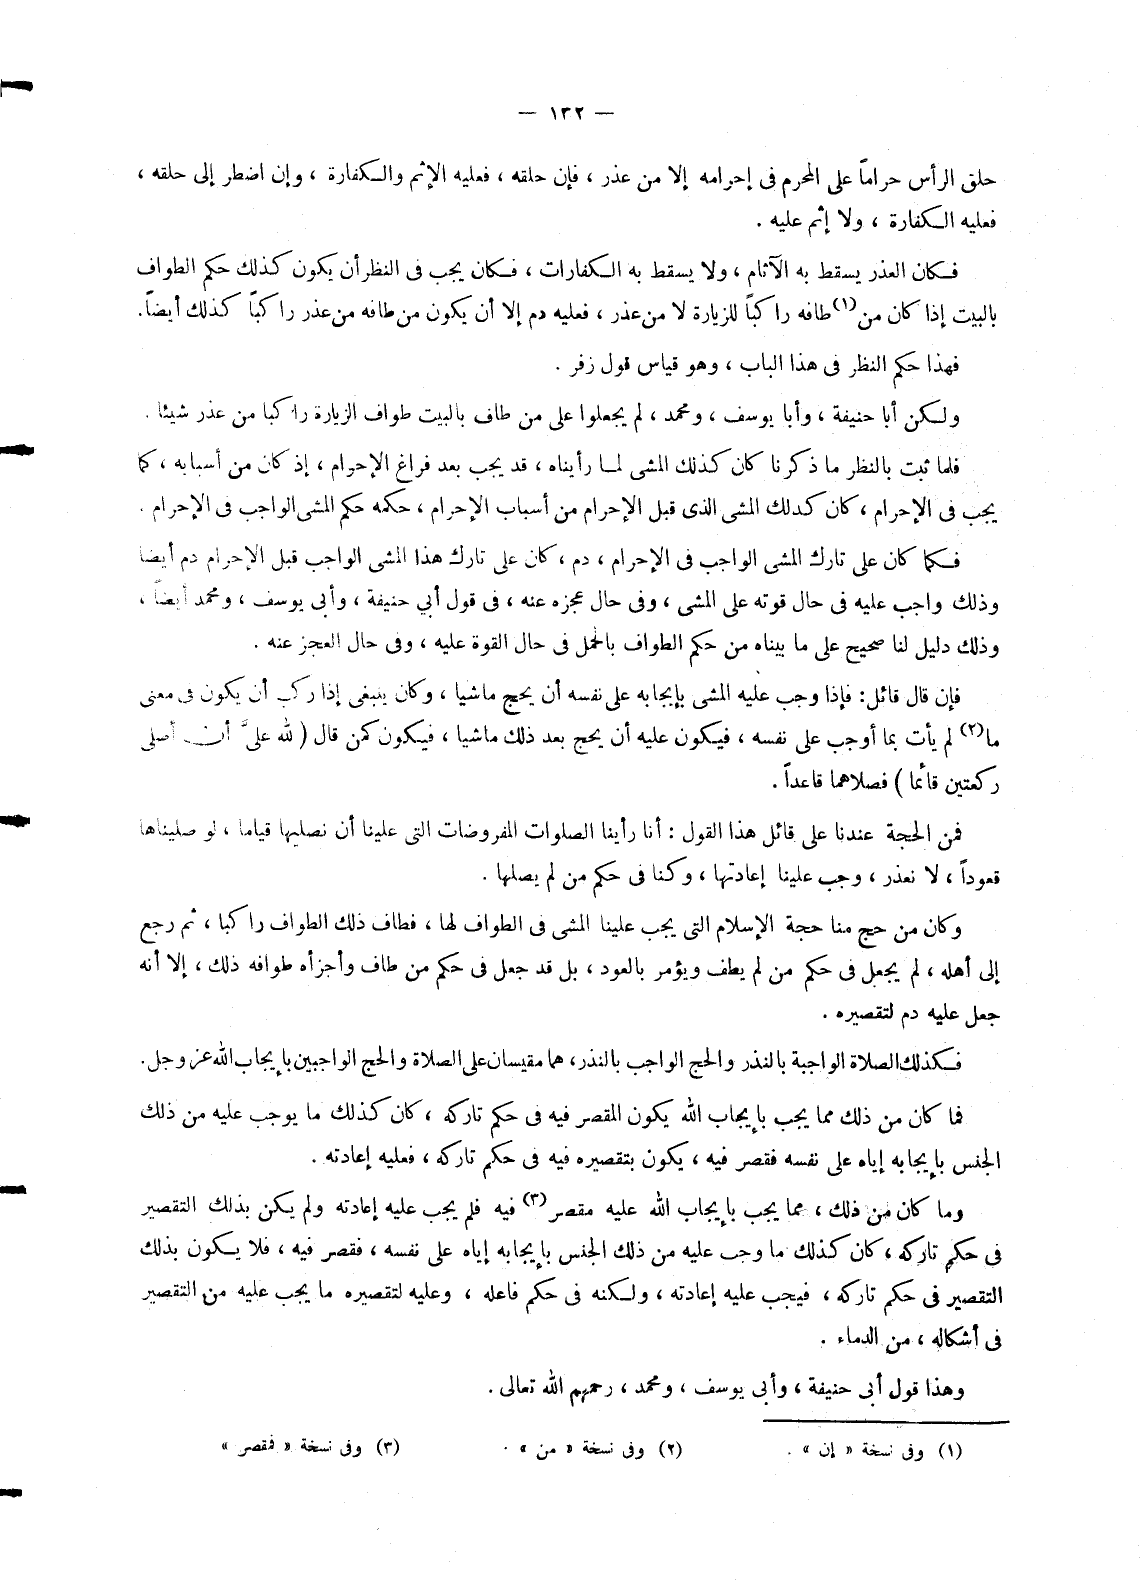 — ١٣٢ —
حلق الرأس حراماً على المحرم فى إحرامه إلا من عذر ، فإن حلقه ، فعليه الإثم والكفارة ، وإن اضطر إلى حلقه ،
فعليه الكفارة ، ولا إثم عليه .
فكان العذر يسقط به الآثام ، ولا يسقط به الكفارات ، فكان يجب فى النظر أن يكون كذلك حكم الطواف
بالبيت إذا كان من(١) طافه راكباً للزيارة لا من عذر ، فعليه دم إلا أن يكون من طافه من عذر راكباً كذلك أيضاً.
فهذا حكم النظر فى هذا الباب ، وهو قياس قول زفر .
ولكن أبا حنيفة ، وأبا يوسف ، ومحمد ، لم يجعلوا على من طاف بالبيت طواف الزيارة راكبا من عذر شيئا .
فلما ثبت بالنظر ما ذكرنا كان كذلك المشى لما رأيناه ، قد يجب بعد فراغ الإحرام ، إذ كان من أسبابه ، كما
يجب فى الإحرام ، كان كدلك المشى الذى قبل الإحرام من أسباب الإحرام ، حكمه حكم المشى الواجب فى الإحرام .
فكما كان على تارك المشى الواجب فى الإحرام ، دم ، كان على تارك هذا المشى الواجب قبل الإحرام دم أيضا
وذلك واجب عليه فى حال قوته على المشى ، وفى حال عجزه عنه ، فى قول أبي حنيفة ، وأبى يوسف ، ومحمد أيضاً ،
وذلك دليل لنا صحيح على ما بيناه من حكم الطواف بالحمل فى حال القوة عليه ، وفى حال العجز عنه .
فإن قال قائل: فإذا وجب عليه المشى بإيجابه على نفسه أن يحج ماشيا ، وكان ينبغى إذا ركب أن يكون فى معنى
ما(٢) لم يأت بما أوجب على نفسه ، فيكون عليه أن يحج بعد ذلك ماشيا ، فيكون كمن قال ( لله علىَّ أن أصلى
ركعتين قائما ) فصلاهما قاعداً .
فمن الحجة عندنا على قائل هذا القول : أنا رأينا الصلوات المفروضات التى علينا أن نصليها قياما ، لو صليناها
قعوداً ، لا نعذر ، وجب علينا إعادتها ، وكنا فى حكم من لم يصلها .
وكان من حج منا حجة الإسلام التى يجب علينا المشى فى الطواف لها ، فطاف ذلك الطواف راكبا ، ثم رجع
إلى أهله ، لم يجعل فى حكم من لم يطف ويؤمر بالعود ، بل قد جعل فى حكم من طاف وأجزأه طوافه ذلك ، إلا أنه
جعل عليه دم لتقصيره .
فكذلك الصلاة الواجبة بالنذر والحج الواجب بالنذر، هما مقيسان على الصلاة والحج الواجبين بإيجاب الله عز وجل.
فما كان من ذلك مما يجب بإيجاب الله يكون المقصر فيه فى حكم تاركه ، كان كذلك ما يوجب عليه من ذلك
الجنس بإيجابه إياه على نفسه فقصر فيه ، يكون بتقصيره فيه فى حكم تاركه ، فعليه إعادته .
وما كان من ذلك ، مما يجب بإيجاب الله عليه مقصر(٣) فيه فلم يجب عليه إعادته ولم يكن بذلك التقصير
فى حكم تاركه ، كان كذلك ما وجب عليه من ذلك الجنس بإيجابه إياه على نفسه ، فقصر فيه ، فلا يكون بذلك
التقصير فى حكم تاركه ، فيجب عليه إعادته ، ولكنه فى حكم فاعله ، وعليه لتقصيره ما يجب عليه من التقصير
فى أشكاله ، من الدماء .
وهذا قول أبى حنيفة ، وأبى يوسف ، ومحمد ، رحمهم الله تعالى .
(١) وفى نسخة « إن » . (٢) وفى نسخة « من » . (٣) وفى نسخة « فمقصر »